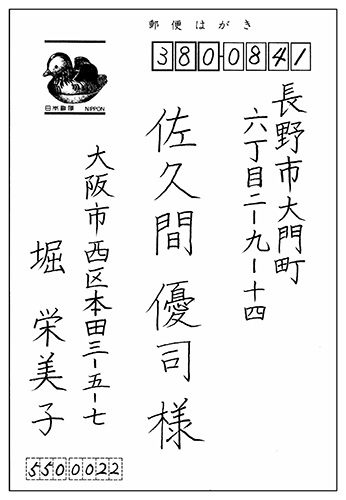 郵便はがき
380-0841
日本郵便 NIPPON
長野市大門町
六丁目二ー九ー十四
佐久間優司様
大阪市西区本田三ー五ー七
堀栄美子
5500022